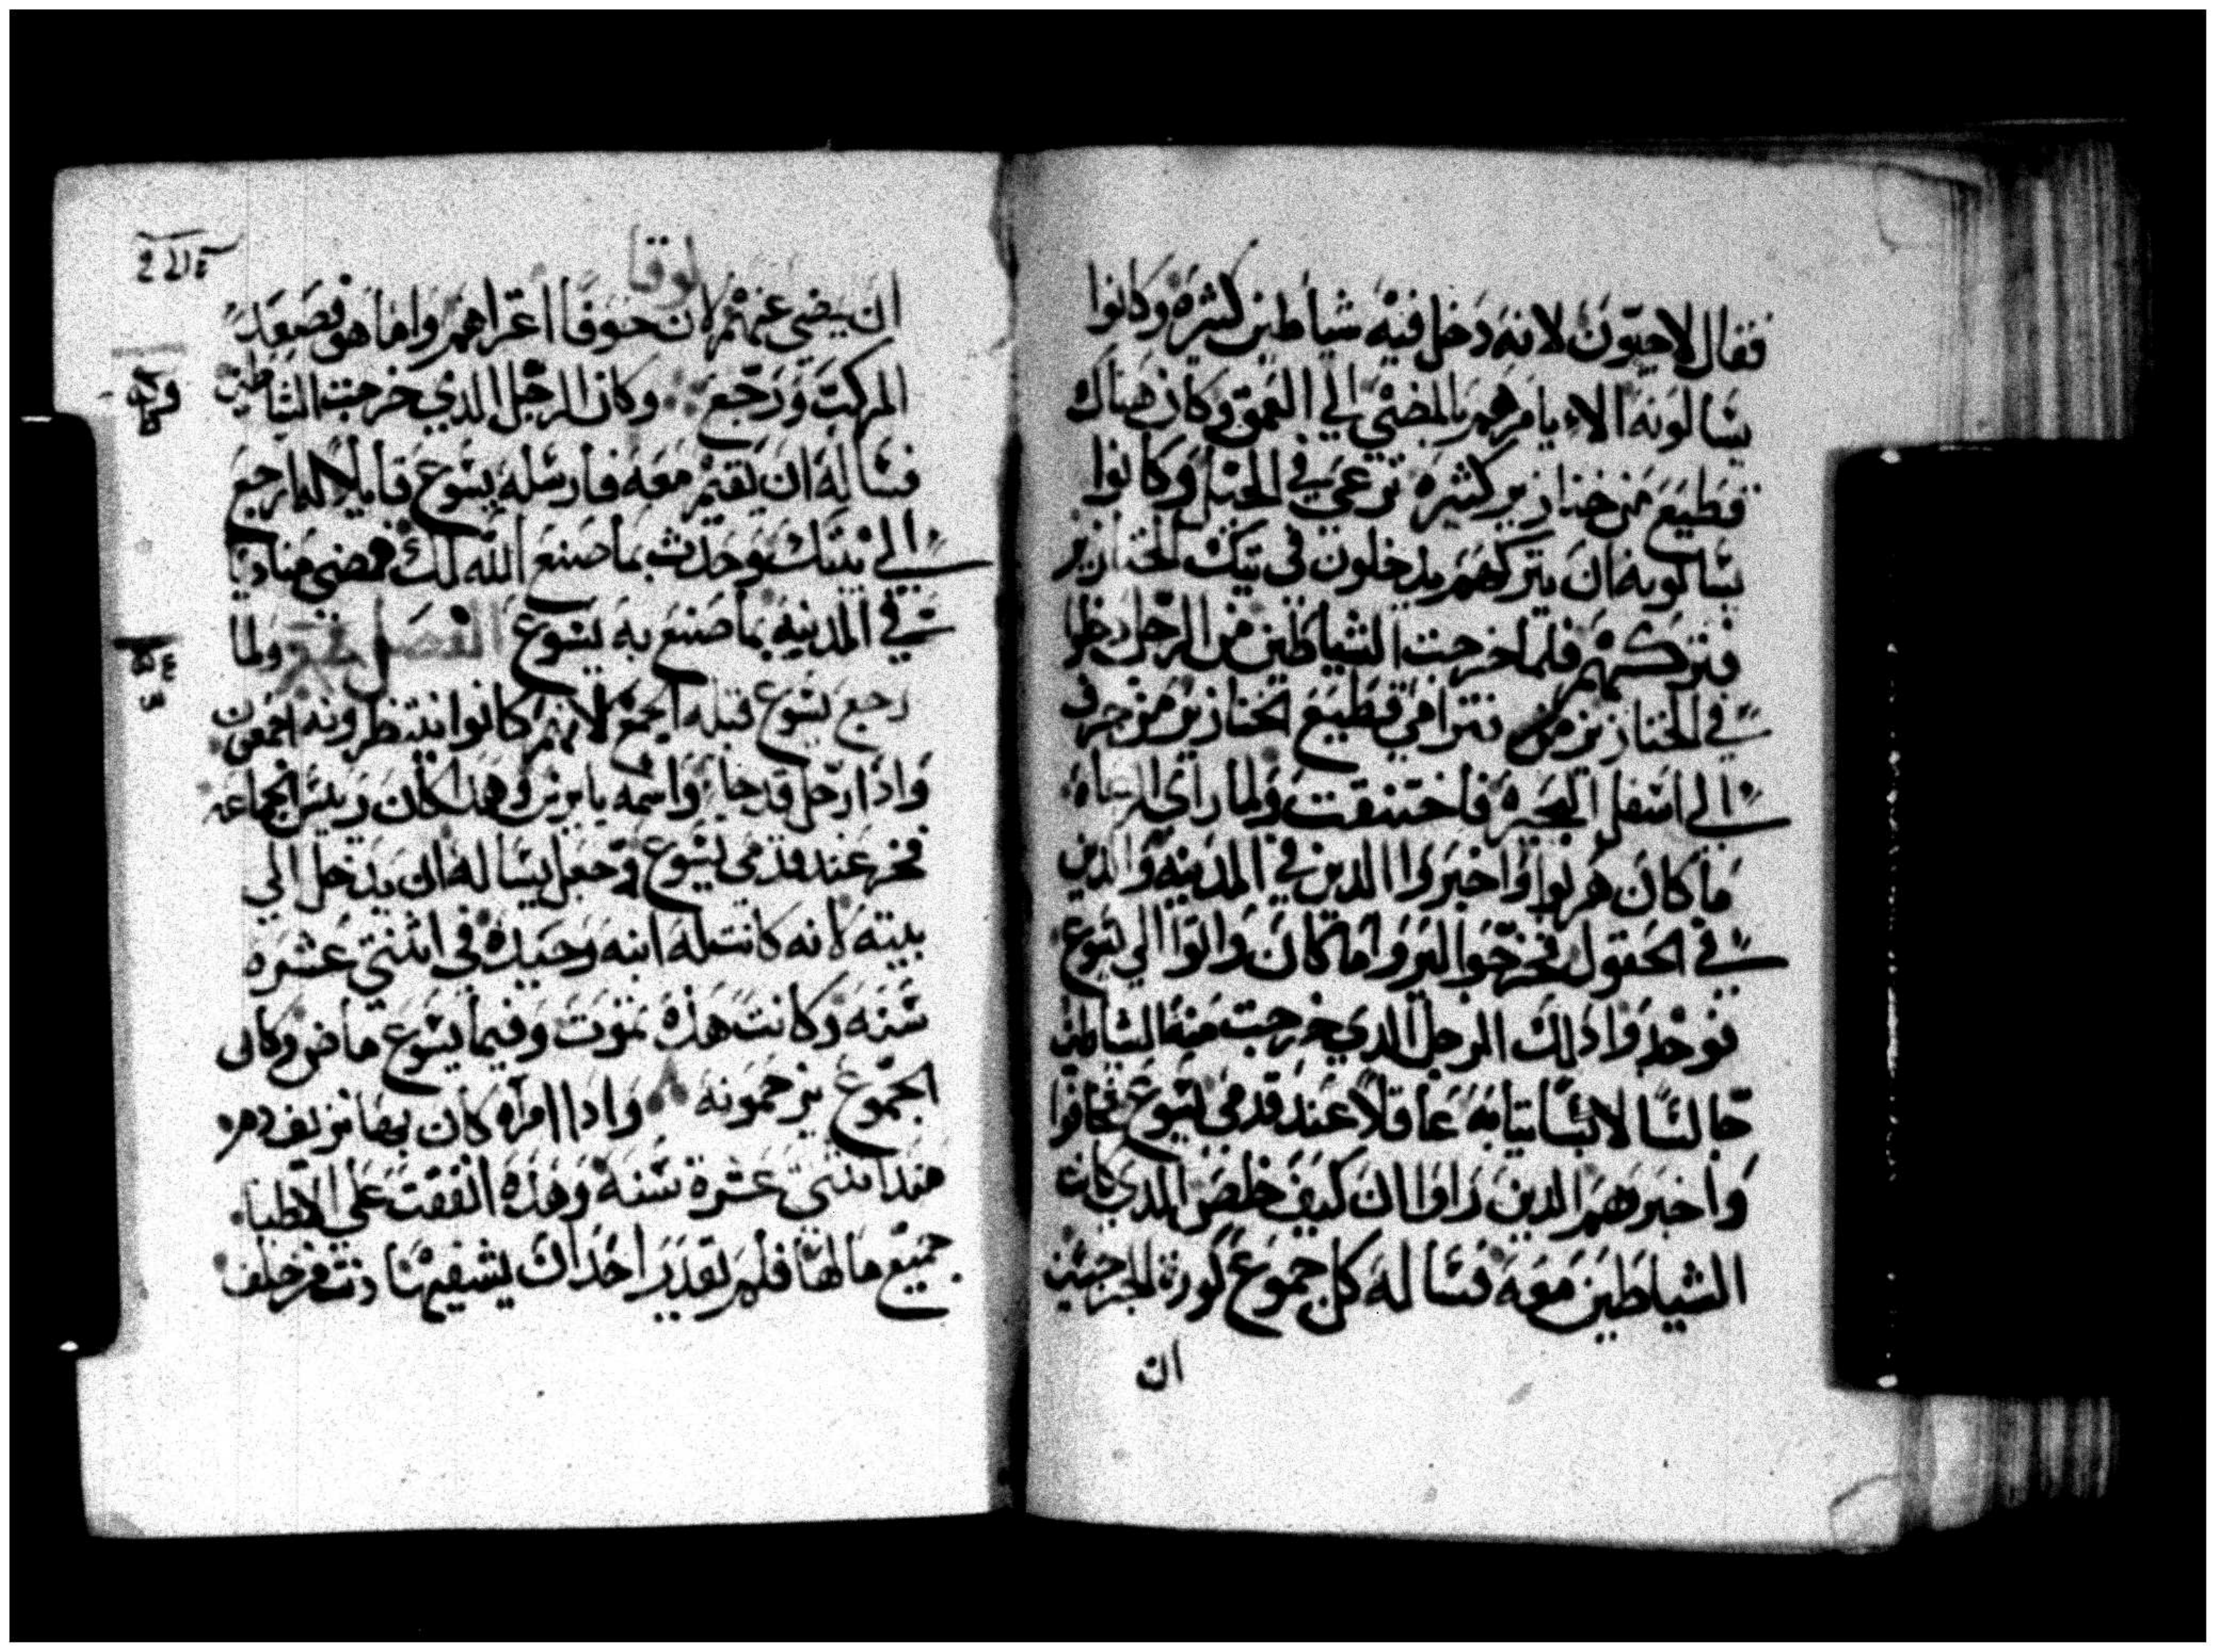 فقال لاجيون لانه دخل فيه شياطين كثيره وكانوا
يسالونه الا يامرهم بالمضي الي العمق وكان هناك
قطيع من خنازير كثيره ترعي في الجبل وكانوا
يسالونه ان يتركهم يدخلون في تيك الخنازير
فتركهم فلما خرجت الشياطين من الرجل دخلوا
في الخنازير تترامي قطيع الخنازير من جرف
الي اسفل البحيره فاختنقت ولما راي الرعاه
ما كان هربوا واخبروا الدين في المدينه والدين
في الحقول فخرجوا ليروا ما كان واتوا الي يسوع
فوجدوا دلك الرجل الدي خرجت منه الشياطين
جالسا لابسا ثيابه عاقلا عند قدمي يسوع فخافوا
واخبروهم الدين راوا ان كيف خلص الدي كانت
الشياطين معه فساله كل جموع كورة الجرجسين
ان
لوقا
ان يمضي عنهم لان خوفا اعتراهم واما هو فصعد
المركب ورجع وكان الرجل الدي خرجت الشياطين
فساله ان يقيم معه فارسله يسوع قايلا له ارجع
الي بيتك وحدث بما صنع الله لك فمضي مناديا
في المدينه بما صنع به يسوع الفصل ولما
رجع يسوع قبله الجمع لانهم كانوا ينتظرونه اجمعون
وادا رجل قد جاء واسمه يايرس وهدا كان رييس الجماعه
فخر عند قدمي يسوع وجعل يساله ان يدخل الي
بيته لانه كانت له ابنه وحيده في اثنتي عشره
سنه وكانت هذه تموت وفيما يسوع ماض وكان
الجموع يزحمونه وادا امراه كان بها نزيف دم
مند اثنتي عشرة سنه وهذه انفقت علي الاطبا
جميع مالها فلم يقدر احد ان يشفيها دنت من خلف